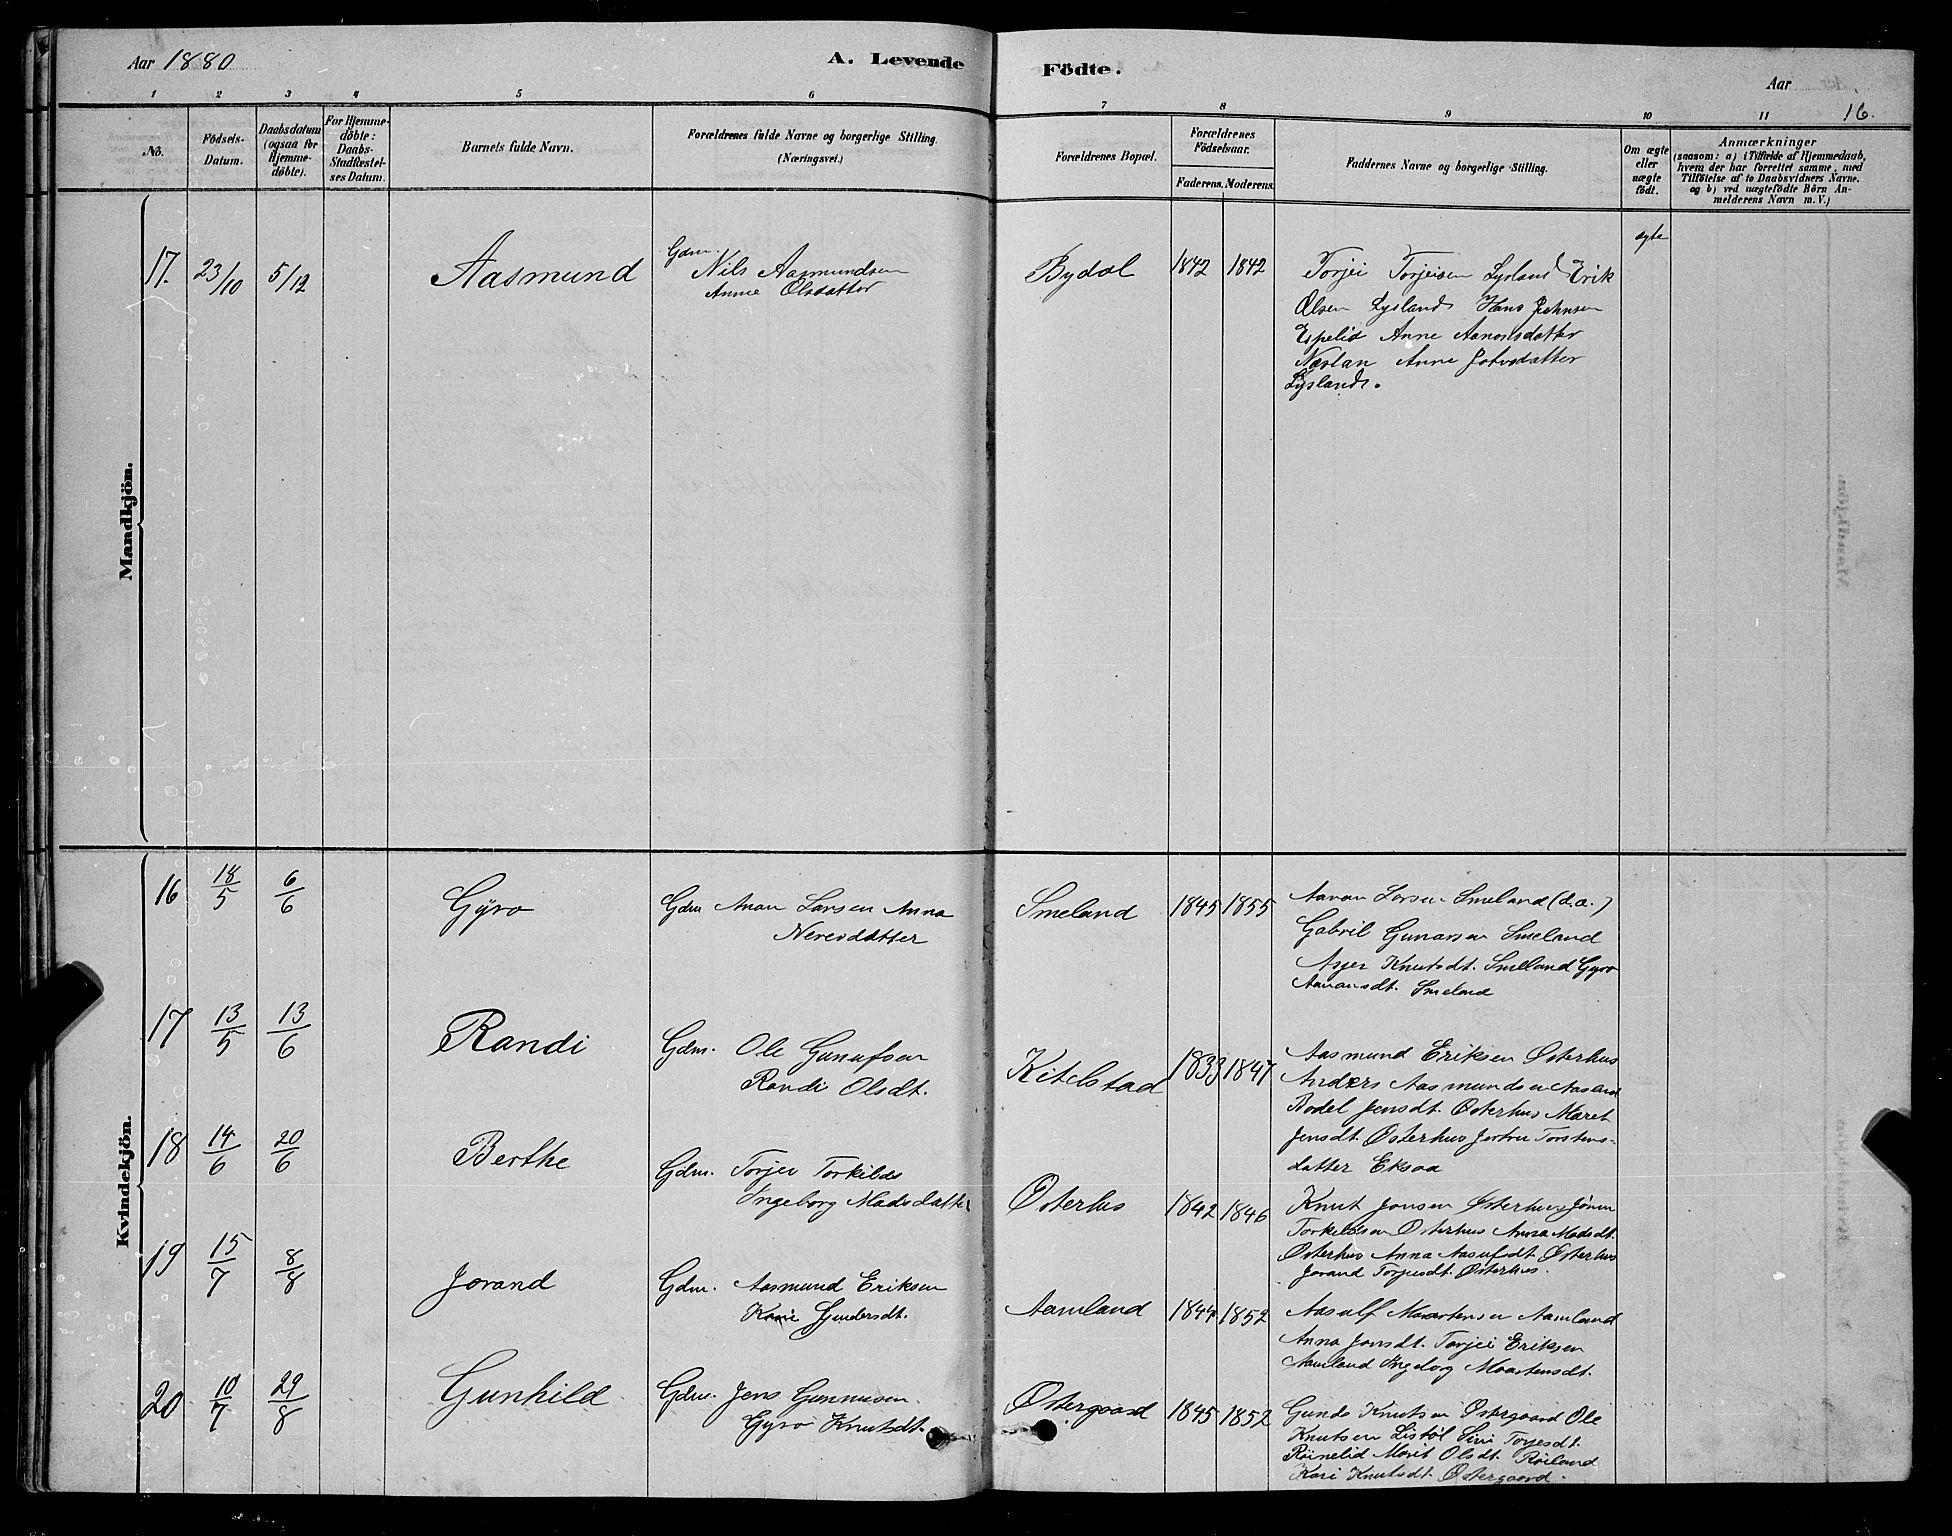 Aar 1880
A. Levende Födte.
Aar
16.
1 2 3 4 5 6 7 8 9 10 11
No.
Födsels-Datum.
Daabsdatum (ogsaa for Hjemme-döbte).
For Hjemme-döbte: Daabs-Stadfæstel-ses Datum.
Barnets fulde Navn.
Forældrenes fulde Navne og borgerlige Stilling. (Næringsvei.)
Forældrenes Bopæl.
Forældrenes Födselsaar.
Faderens. Moderens.
Faddernes Navne og borgerlige Stilling.
Om ægte eller uægte födt.
Anmærkninger
(saasom: a) i Tilfælde af Hjemmedaab,
hvem der har forrettet samme, med
Tilföielse af to Daabsvidners Navne.
og b) ved uægtefödte Börn An-
melderens Navn m. V.)
Mandkjön.
17. 23/10 5/12 Aasmund
Gdm. Nils Aasmundsen
Anne Olsdatter
Bydal 1842 1842
Torjei Torjeisen Lysland Erik
Olsen Lysland Hans Johnsen
Espelid Anne Aanonsdatter
Anne
Lysland.
ægte
Kvindekjön.
16 18/5 6/6 Gyro
Gdm Anan Larsen Anna
Smeland 1845 1855
Aavan Larsen Smeland (d.a.)
Gabril Gunarsen Smeland
Knutsdt. Smeland Gyro
Smeland
17 13/5 13/6 Randi
Gdm. Ole
Randi Olsdt.
Kitelstad 1833 1847
Aasmund Eriksen Østerhus
Anders Aasmundsen
Bodel Jensdt. Østerhus Maret
Jensdt Østerhus Torstens-
datter Eksaa
18 14/6 20/6 Berthe
Gdm. Torjei Torkilds
Ingeborg Madsdatter
Østerhus 1842 1846
Knut Jonsen Østerhus
Torkelsen Østerhus Anna Madsdt.
Østerhus Anna Aasufdt. Østerhus
Jorand Torjusdt. Østerhus.
19 15/7 8/8 Jorand
Gdm. Aasmund Eriksen
Kari
Aamland 1844 1852
Aasulf Maartensen Aamland
Anna Jonsdt. Torjei Eriksen
Aamland Ingeborg Maartensdt.
20 10/7 29/8 Gunhild
Gdm. Jens Gunnusen
Gyro Knutsdt.
Østergaard 1845 1852
Knutsen Østergaard Ole
Knutsen Listöl Siri
Marit Olsdt.
Kari Knutsdt. Østergaard.